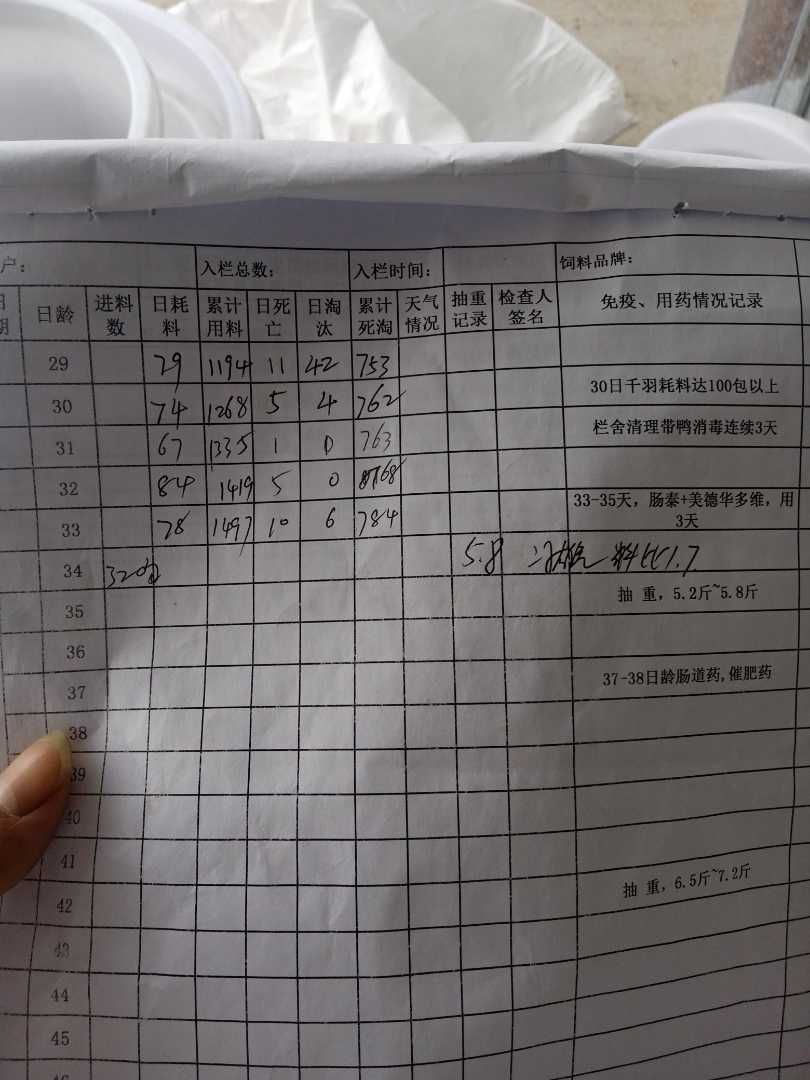 户: 入栏总数: 入栏时间: 饲料品牌:
日期 日龄 进料数 日耗料 累计用料 日死亡 日淘汰 累计死淘 天气情况 抽重记录 检查人签名 免疫、用药情况记录
29 29 1194 11 42 753
30 74 1268 5 4 762 30日千羽耗料达100包以上
31 67 1335 1 0 763 栏舍清理带鸭消毒连续3天
32 84 1419 5 0 768
33 78 1497 10 6 784 33-35天，肠泰+美德华多维，用3天
34 320 5.8 料比1.7
35 抽 重，5.2斤~5.8斤
36
37 37-38日龄肠道药,催肥药
38
39
40
41
42 抽 重，6.5斤~7.2斤
43
44
45
46